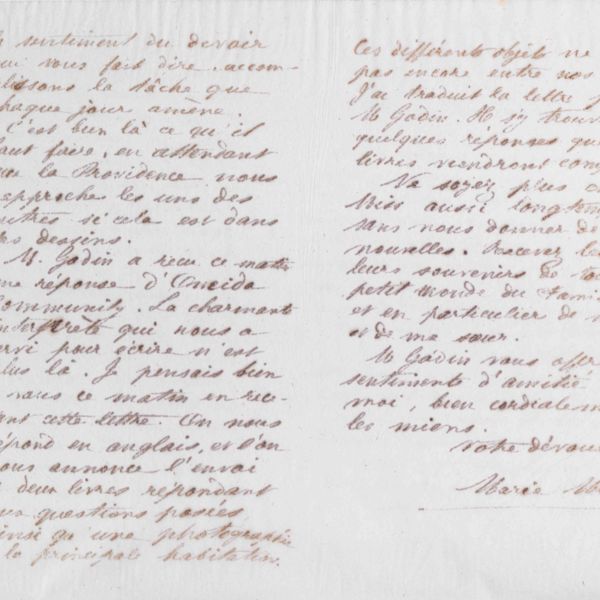 sentiment du devoir
vous fait dire, accom-
plissons la tâche que
chaque jour amène.
C'est bien là ce qu'il
faut faire, en attendant
que la Providence nous
rapproche les uns des
autres si cela est dans
ses desseins.
M. Godin a reçu ce matin
une réponse d'Oneida
Community. La charmante
interprète qui nous a
servi pour écrire n'est
plus là. Je pensais bien
à vous ce matin en rece-
vant cette lettre. On nous
répond en anglais, et l'on
nous annonce l'envoi
deux livres répondant
aux questions posées
ainsi qu'une photographie
la principale habitation.
Ces différents objets ne
pas encore entre nos
J'ai traduit la lettre
M Godin. Il s'y trouv
quelques réponses que
livres viendront com
Ne soyez plus
Miss aussi longtem
sans nous donner de
nouvelles. Recevez le
leurs souvenirs de to
petit monde du Fami
et en particulier de
et de ma sœur.
M Godin vous offr
sentiments d'amitié
moi, bien cordialem
les miens.
Votre dévou
Marie M